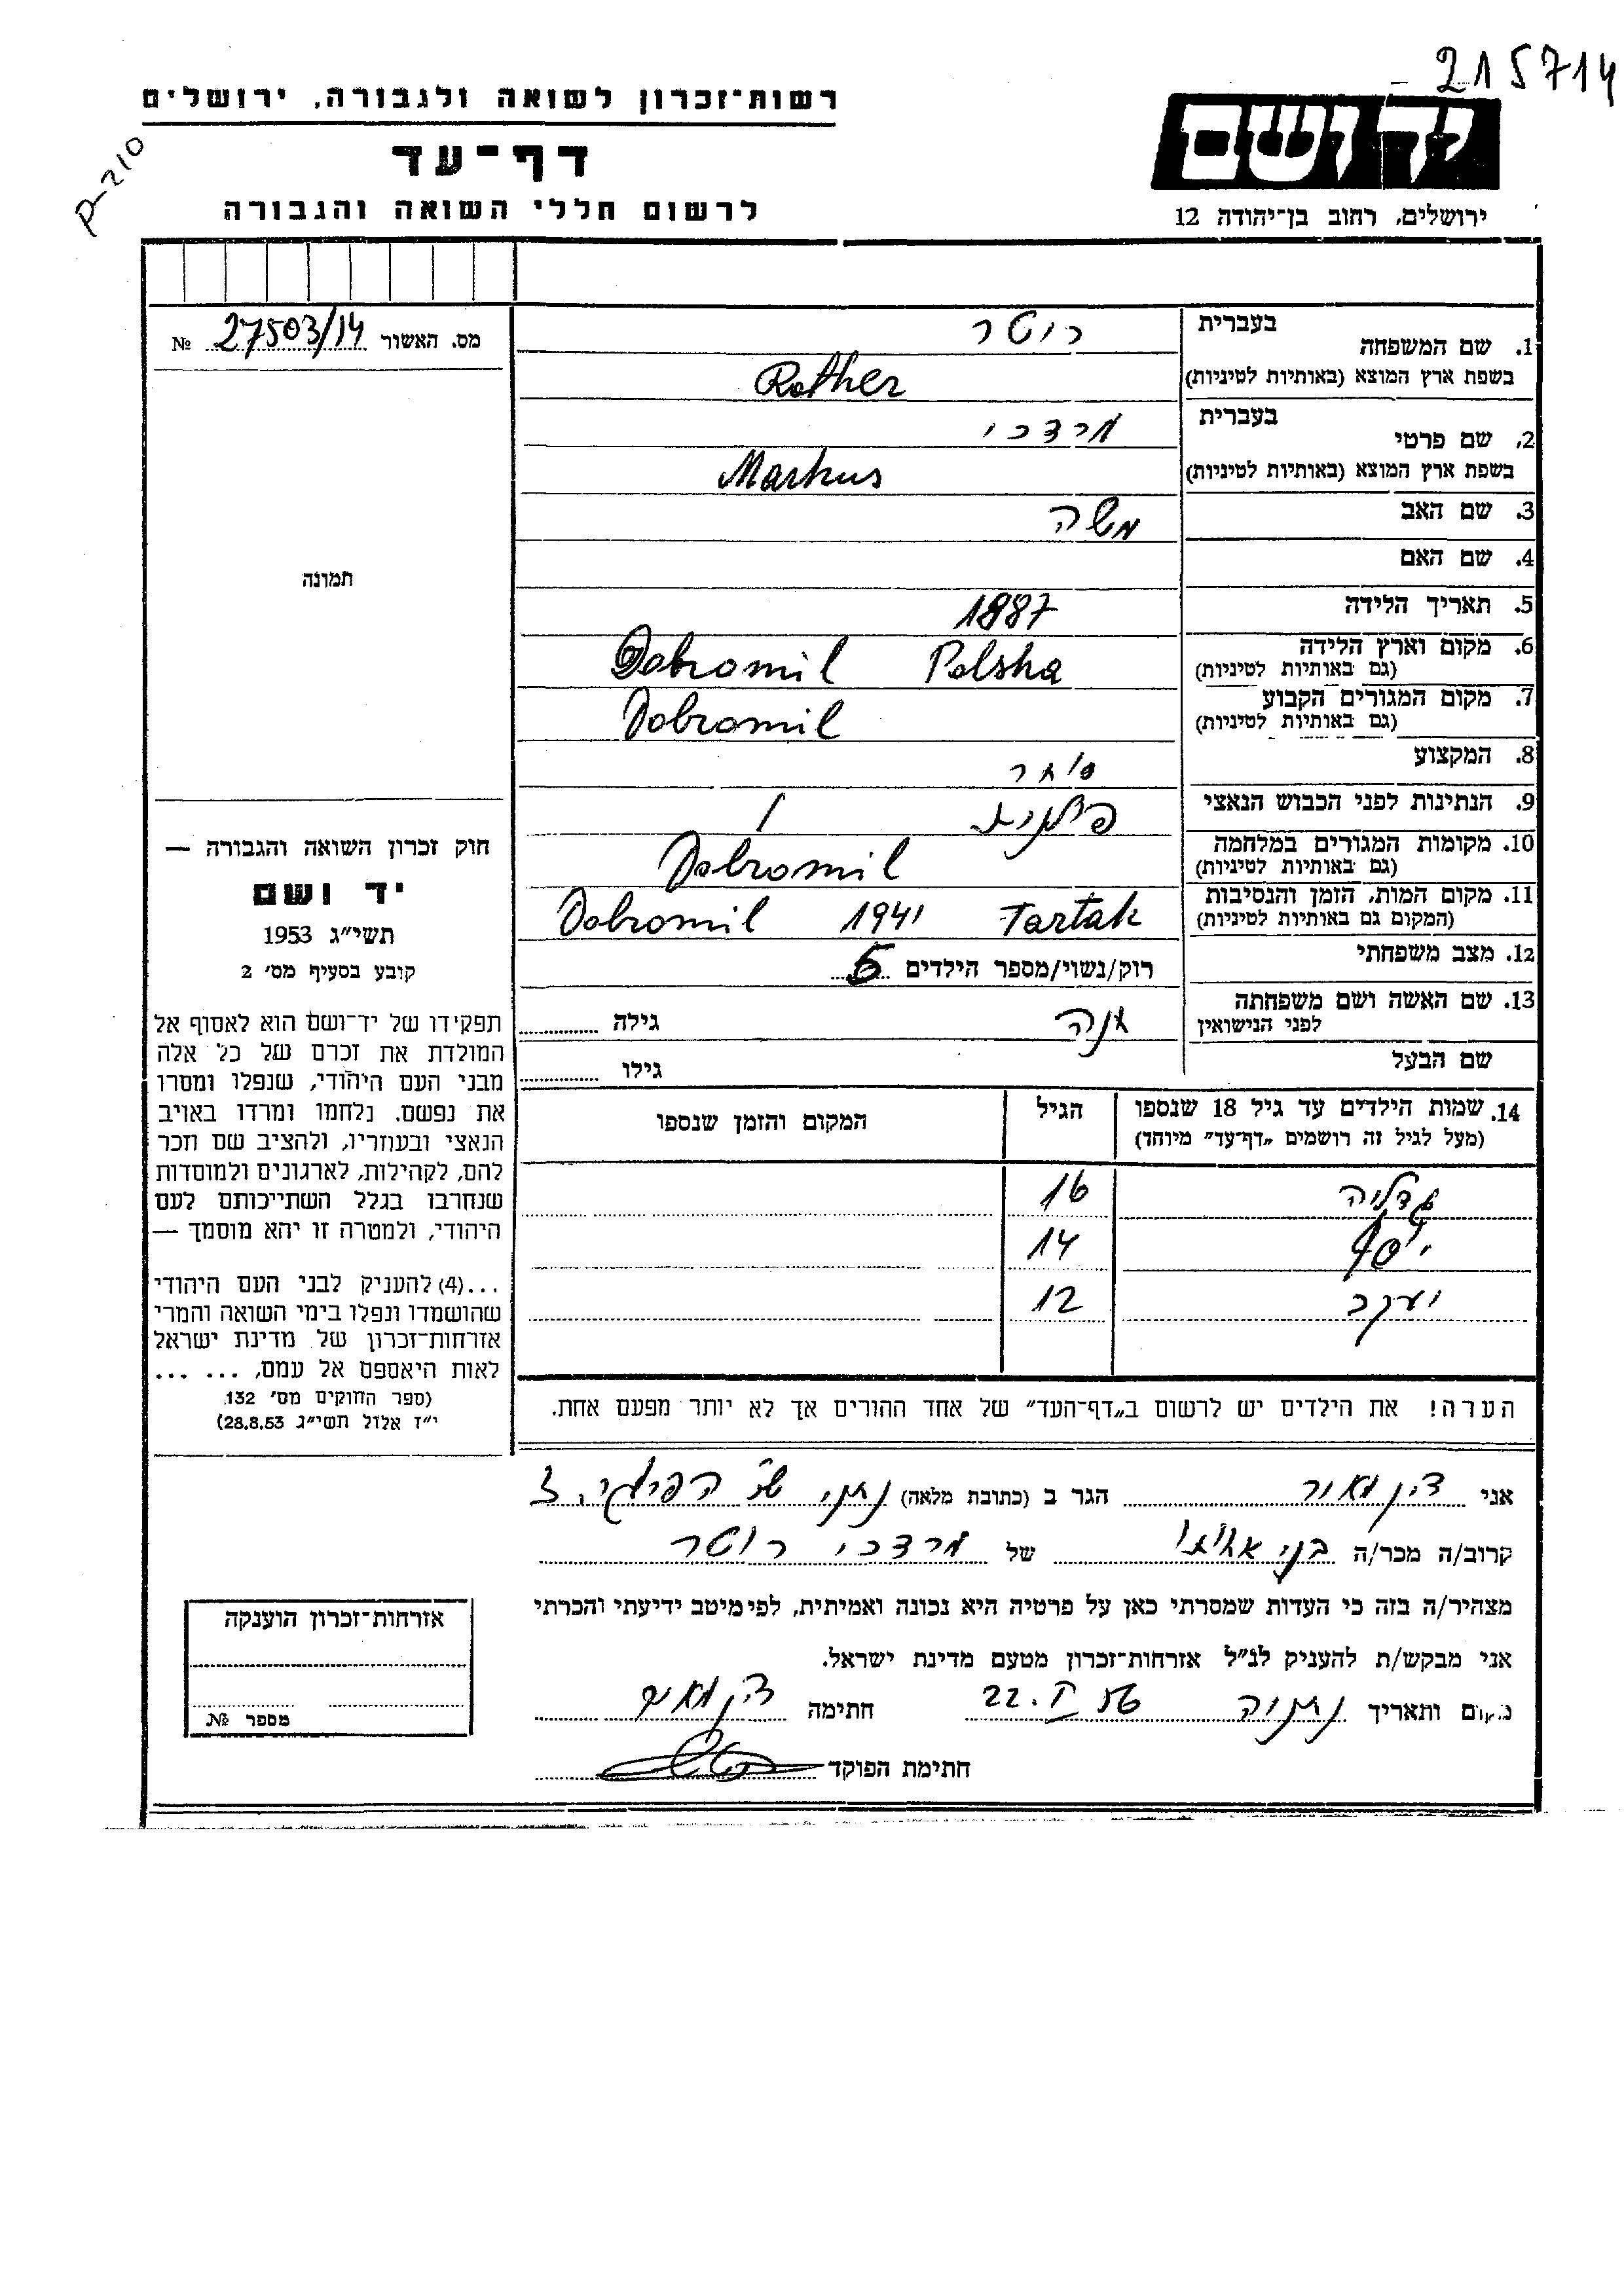 215714
רשות־זכרון לשואה ולגבורה, ירושלים
ידושם
P-210
דף־עד
לרשום חללי השואה והגבורה
ירושלים, רחוב בן־יהודה 12
מס. האשור 27503/14 №
1. שם המשפחה בעברית רוטר
בשפת ארץ המוצא (באותיות לטיניות) Rother
2. שם פרטי בעברית מרדכי
בשפת ארץ המוצא (באותיות לטיניות) Markus
3. שם האב משה
4. שם האם
5. תאריך הלידה 1887
6. מקום וארץ הלידה (גם באותיות לטיניות) Dobromil Polska
7. מקום המגורים הקבוע (גם באותיות לטיניות) Dobromil
8. המקצוע סוחר
9. הנתינות לפני הכבוש הנאצי פולנית
10. מקומות המגורים במלחמה (גם באותיות לטיניות) Dobromil
11. מקום המות, הזמן והנסיבות (המקום גם באותיות לטיניות) Dobromil 1941 Tartak
12. מצב משפחתי רוק/נשוי/מספר הילדים 5
13. שם האשה ושם משפחתה לפני הנישואין אנה גילה
שם הבעל גילו
14. שמות הילדים עד גיל 18 שנספו הגיל המקום והזמן שנספו
(מעל לגיל זה רושמים „דף־עד” מיוחד)
גדליה 16
יוסף 14
יעקב 12
הערה! את הילדים יש לרשום ב„דף־העד” של אחד ההורים אך לא יותר מפעם אחת.
תמונה
חוק זכרון השואה והגבורה —
יד ושם
תשי״ג 1953
קובע בסעיף מס׳ 2
תפקידו של יד־ושם הוא לאסוף אל
המולדת את זכרם של כל אלה
מבני העם היהודי, שנפלו ומסרו
את נפשם. נלחמו ומרדו באויב
הנאצי ובעוזריו, ולהציב שם וזכר
להם, לקהילות, לארגונים ולמוסדות
שנחרבו בגלל השתייכותם לעם
היהודי, ולמטרה זו יהא מוסמך —
...(4) להעניק לבני העם היהודי
שהושמדו ונפלו בימי השואה והמרי
אזרחות־זכרון של מדינת ישראל
לאות היאספם אל עמם, ... ...
(ספר החוקים מס׳ 132.
י״ז אלול תשי״ג 28.8.53)
אני הגר ב (כתובת מלאה)
קרוב/ה מכר/ה של מרדכי רוטר
מצהיר/ה בזה כי העדות שמסרתי כאן על פרטיה היא נכונה ואמיתית, לפי מיטב ידיעתי והכרתי
אני מבקש/ת להעניק לנ״ל אזרחות־זכרון מטעם מדינת ישראל.
מקום ותאריך נתניה 22. חתימה
חתימת הפוקד
אזרחות־זכרון הוענקה
מספר №